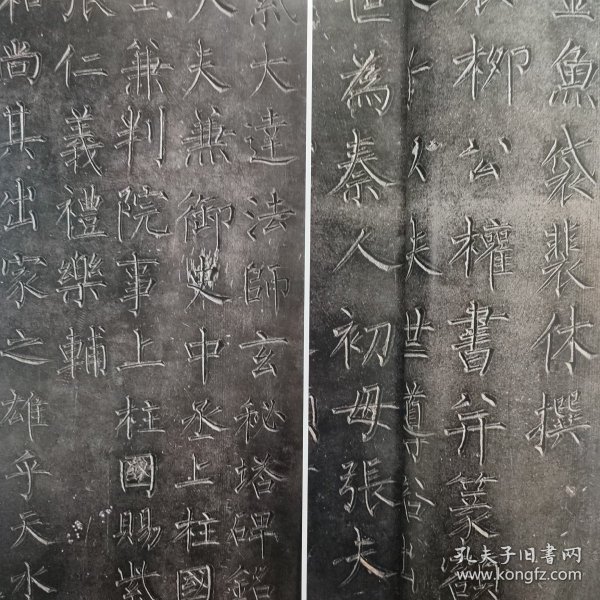 金魚袋裴休撰
柳公權書并篆額
世為秦人初母張夫
大達法師玄秘塔碑銘
夫兼御史中丞上柱國
兼判院事上柱國賜紫
張仁義禮樂輔
和尚其出家之雄乎天水
孔夫子旧書网
www.kongfz.com